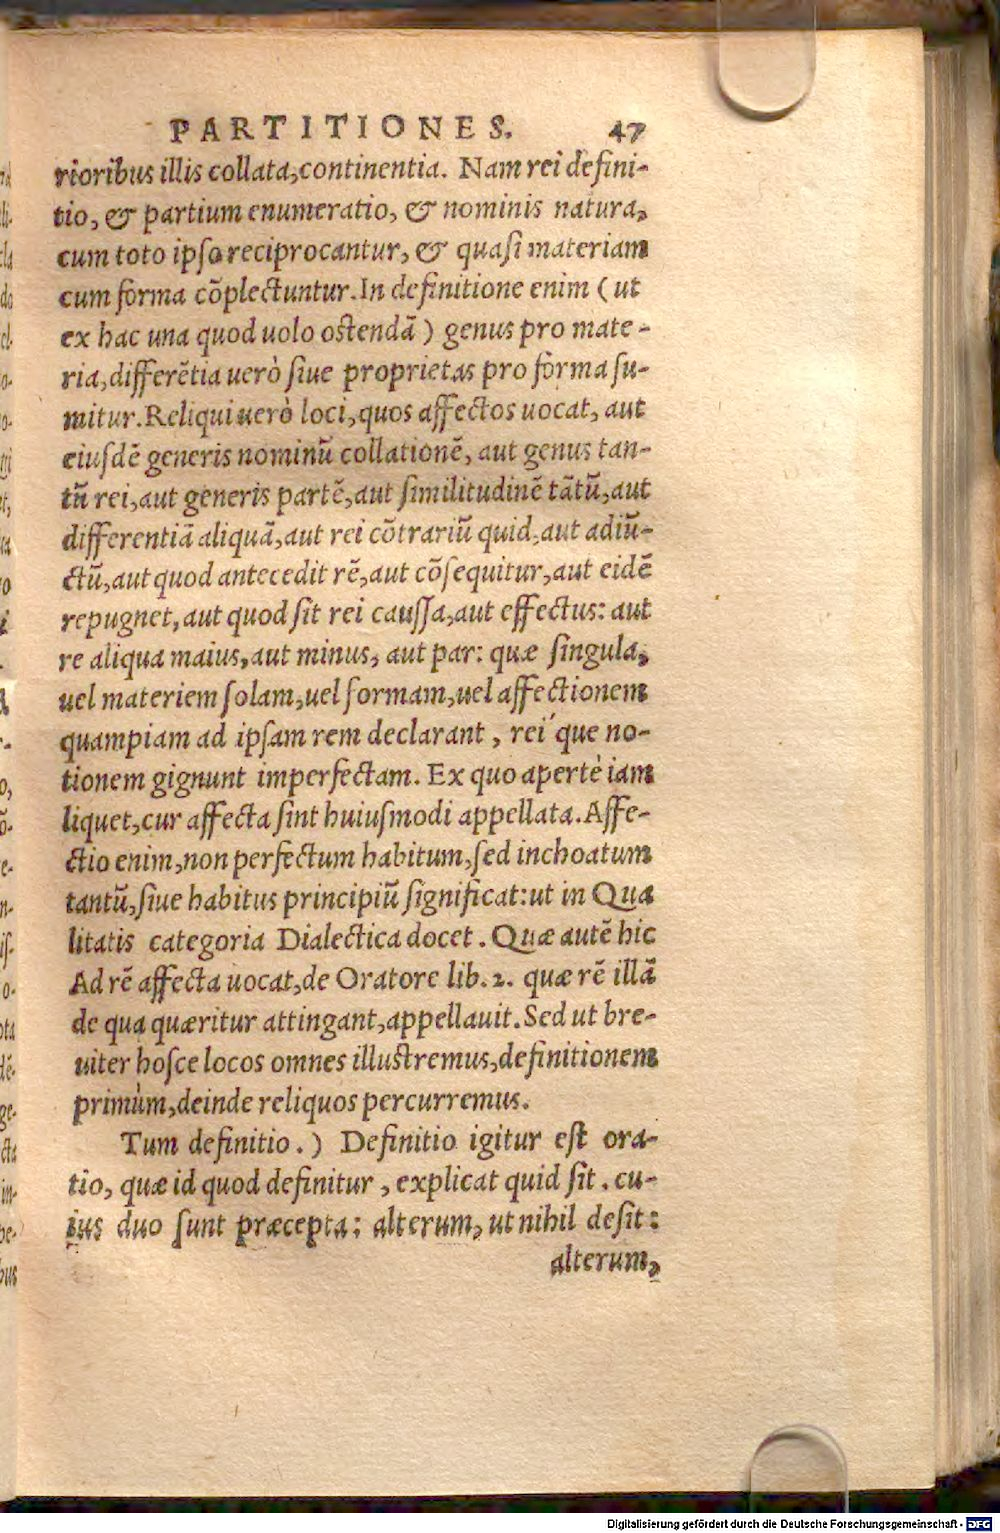 PARTITIONES. 47
rioribus illis collata,continentia. Nam rei defini-
tio, & partium enumeratio, & nominis natura,
cum toto ipso reciprocantur, & quasi materiam
cum forma cōplectuntur.In definitione enim ( ut
ex hac una quod uolo ostendā ) genus pro mate-
ria,differētia uerò siue proprietas pro forma su-
mitur.Reliqui uerò loci,quos affectos uocat, aut
eiusdē generis nominū collationē, aut genus tan-
tū rei,aut generis partē,aut similitudinē tātū,aut
differentiā aliquā,aut rei cōtrariū quid,aut adiū-
ctū,aut quod antecedit rē,aut cōsequitur,aut eidē
repugnet,aut quod sit rei caussa,aut effectus: aut
re aliqua maius,aut minus, aut par: quæ singula,
uel materiem solam,uel formam,uel affectionem
quampiam ad ipsam rem declarant , rei´que no-
tionem gignunt imperfectam. Ex quo apertè iam
liquet,cur affecta sint huiusmodi appellata.Affe-
ctio enim,non perfectum habitum,sed inchoatum
tantū,siue habitus principiū significat:ut in Qua
litatis categoria Dialectica docet. Quæ autē hic
Ad rē affecta uocat,de Oratore lib.2. quæ rē illā
de qua quæritur attingant,appellauit.Sed ut bre-
uiter hosce locos omnes illustremus,definitionem
primùm,deinde reliquos percurremus.
Tum definitio.) Definitio igitur est ora-
tio, quæ id quod definitur , explicat quid sit. cu-
ius duo sunt præcepta: alterum, ut nihil desit:
alterum,
Digitalisierung gefördert durch die Deutsche Forschungsgemeinschaft - DFG